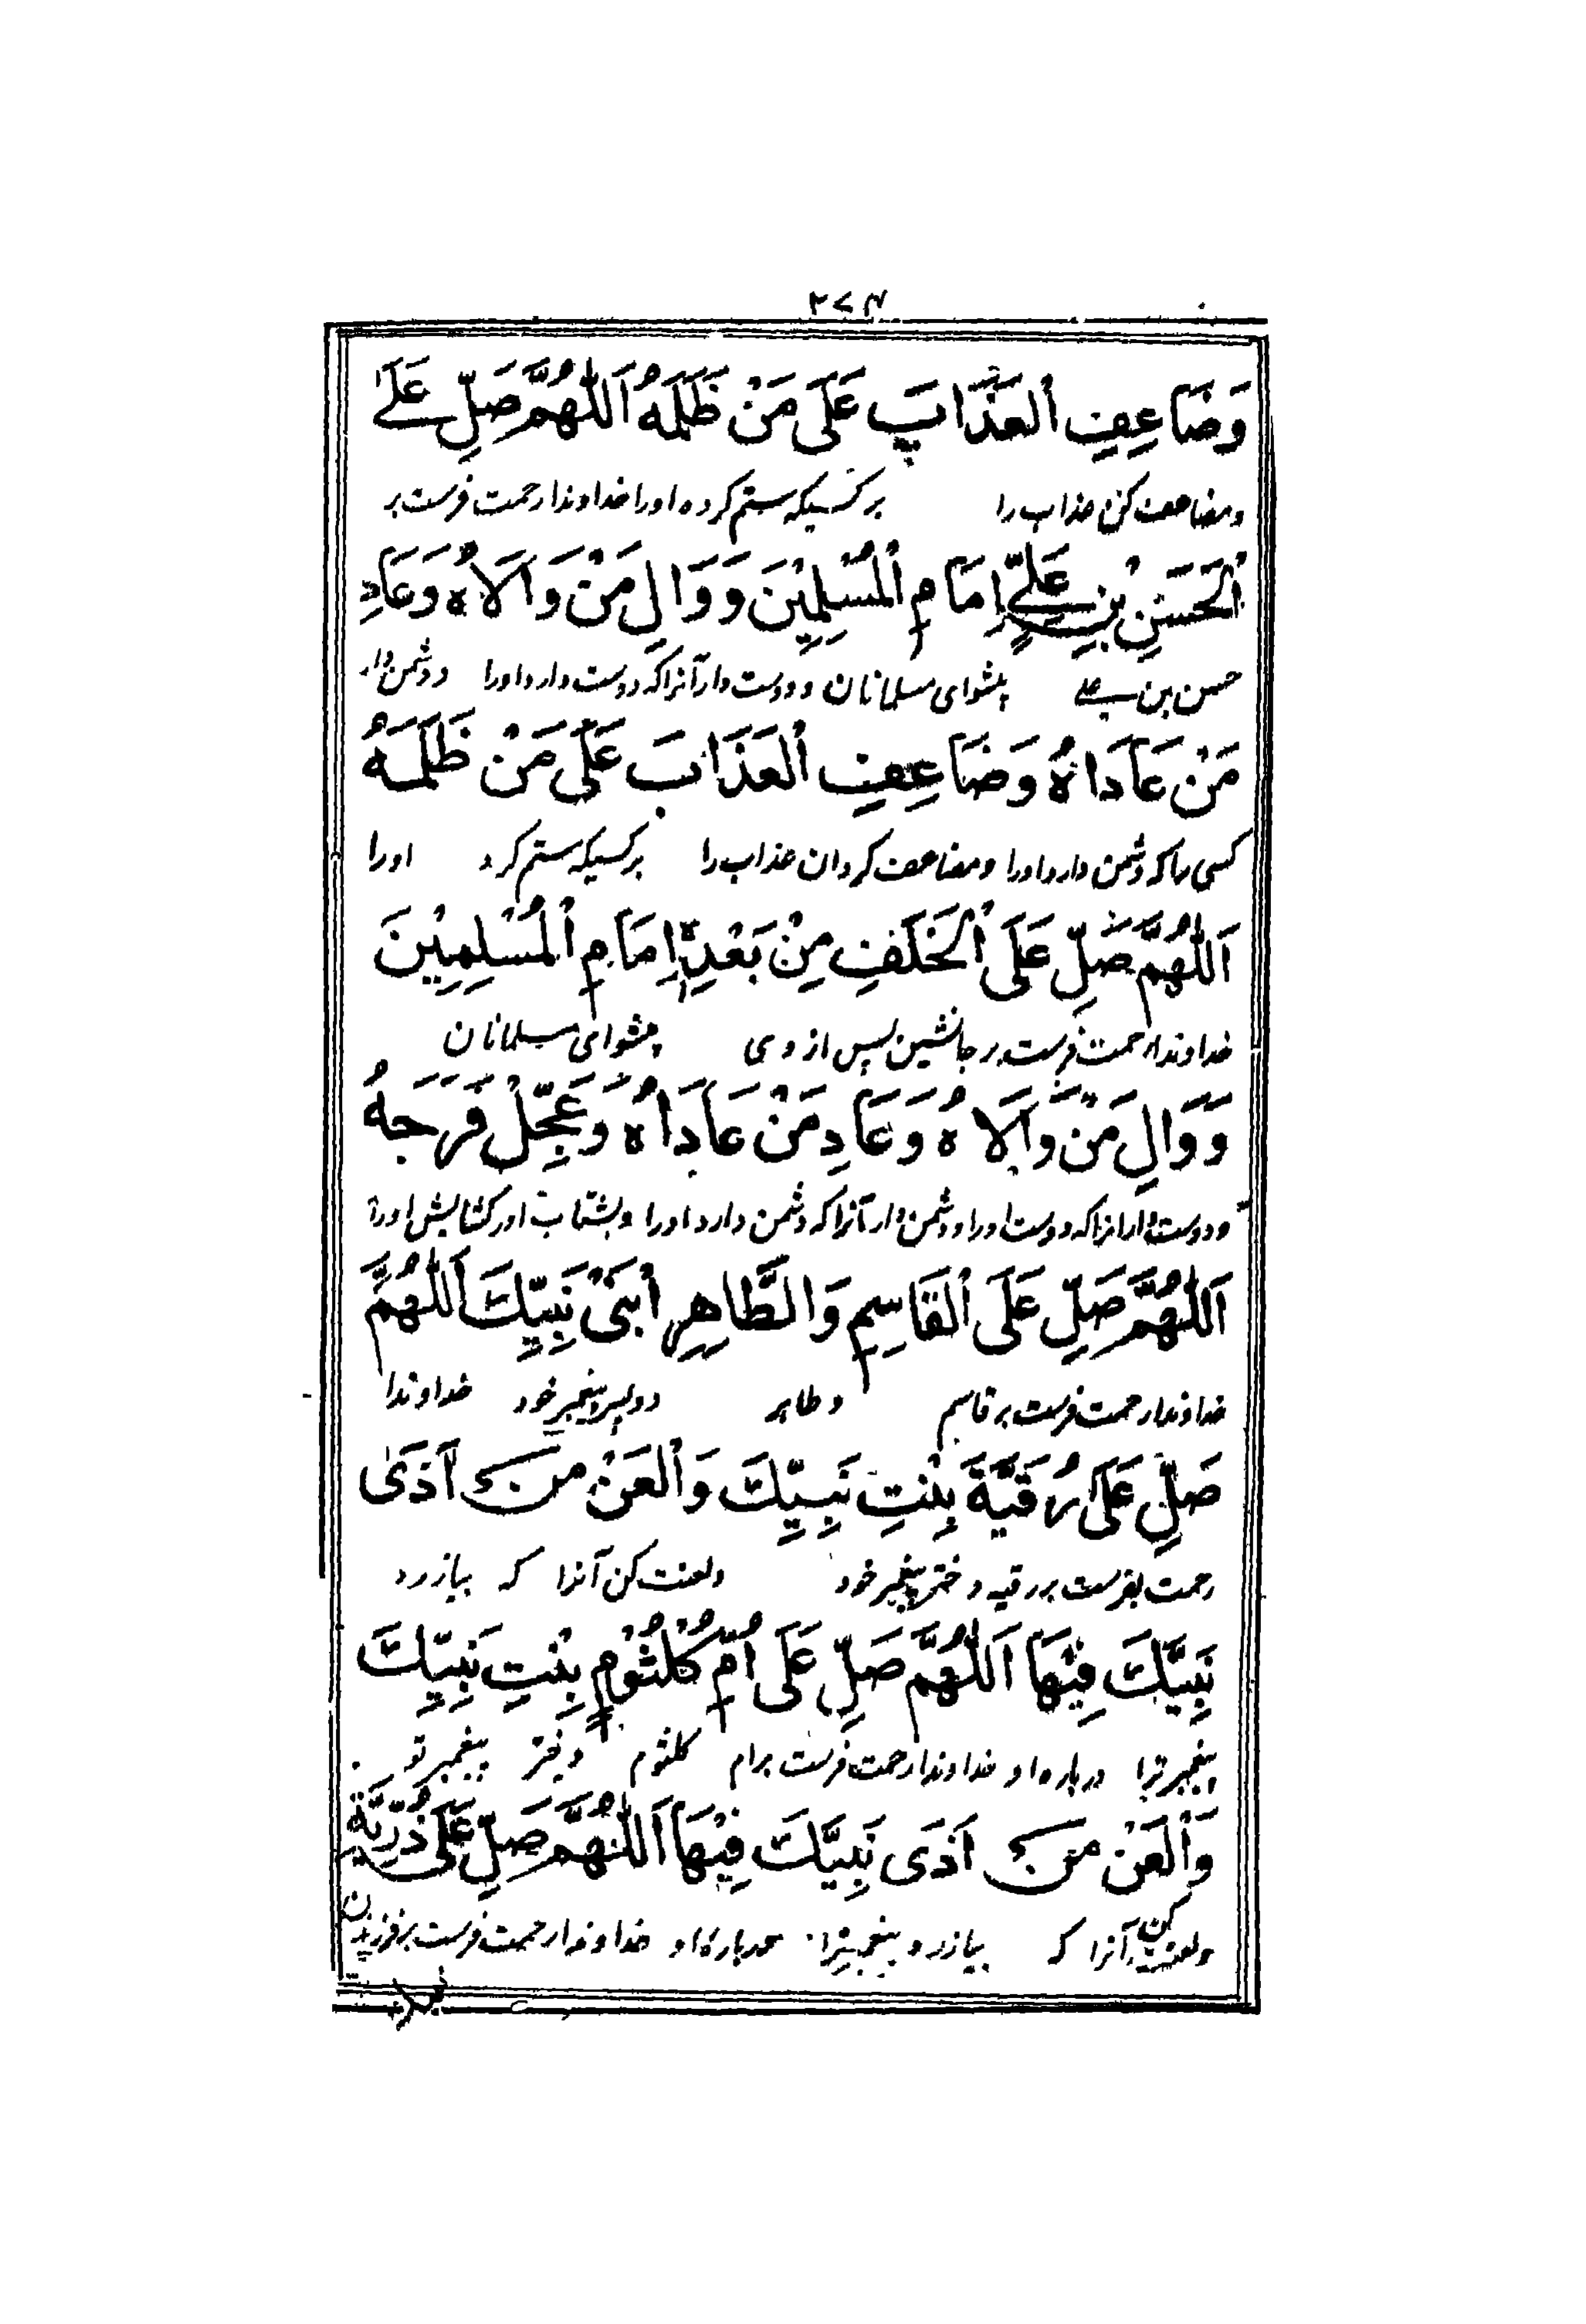 ۲۷۴
وَضَاعِفِ الْعَذَابَ عَلَى مَنْ ظَلَمَهُ اَللّٰهُمَّ صَلِّ عَلَى
ومضاعف کن عذاب را بر کسیکه ستم کرده اورا خداوندا رحمت فرست بر
الْحَسَنِ بْنِ عَلِيٍّ اِمَامِ الْمُسْلِمِيْنَ وَوَالِ مَنْ وَالَاهُ وَعَادِ
حسن بن علی پیشوای مسلمانان ودوست دار آنرا که دوست دارد اورا ودشمن دار
مَنْ عَادَاهُ وَضَاعِفِ الْعَذَابَ عَلَى مَنْ ظَلَمَهُ
کسی را که دشمن دارد اورا ومضاعف گردان عذاب را بر کسیکه ستم کرد اورا
اَللّٰهُمَّ صَلِّ عَلَى الْخَلَفِ مِنْ بَعْدِهٖ اِمَامِ الْمُسْلِمِيْنَ
خداوندا رحمت فرست بر جانشین پس از وی پیشوای مسلمانان
وَوَالِ مَنْ وَالَاهُ وَعَادِ مَنْ عَادَاهُ وَعَجِّلْ فَرَجَهُ
ودوست دار آنرا که دوست اورا ودشمن دار آنرا که دشمن دارد اورا وبشتاب اور کشایش اورا
اَللّٰهُمَّ صَلِّ عَلَى الْقَاسِمِ وَالطَّاهِرِ ابْنَيْ نَبِيِّكَ اَللّٰهُمَّ
خداوندا رحمت فرست بر قاسم وطاهر دو پسر پیغمبر خود خداوندا
صَلِّ عَلَى رُقَيَّةَ بِنْتِ نَبِيِّكَ وَالْعَنْ مَنْ اٰذَى
رحمت بفرست بر رقیه دختر پیغمبر خود ولعنت کن آنرا که بیازرد
نَبِيَّكَ فِيْهَا اَللّٰهُمَّ صَلِّ عَلَى اُمِّ كُلْثُوْمٍ بِنْتِ نَبِيِّكَ
پیغمبر ترا درباره او خداوندا رحمت فرست بر ام کلثوم دختر پیغمبر تو
وَالْعَنْ مَنْ اٰذَى نَبِيَّكَ فِيْهَا اَللّٰهُمَّ صَلِّ عَلَى ذُرِّيَّةِ
ولعنت کن آنرا که بیازرد پیغمبر ترا درباره او خداوندا رحمت فرست بر فرزندان